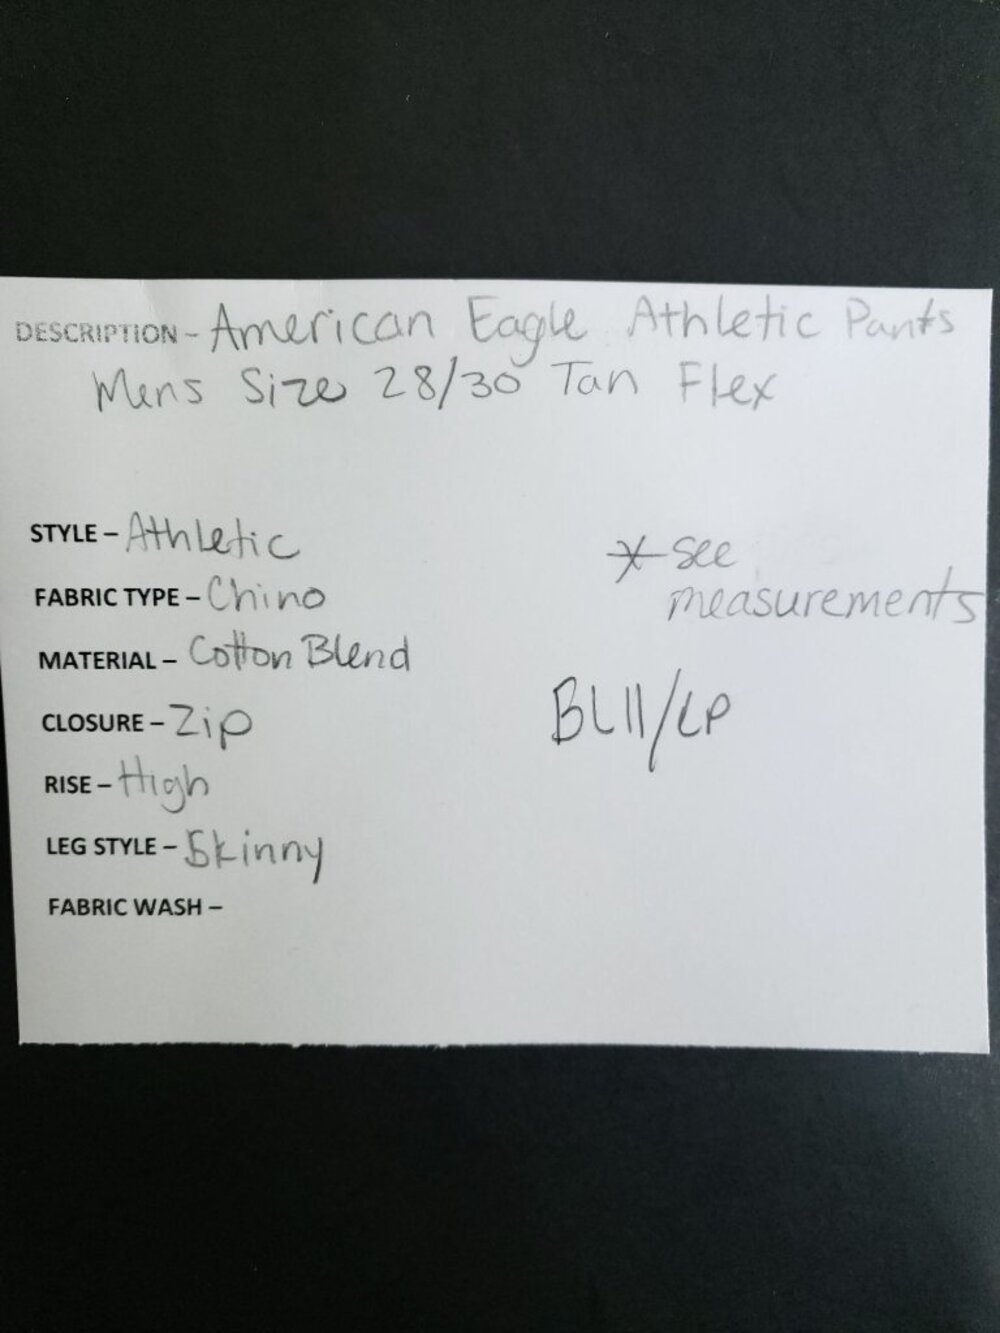 DESCRIPTION - American Eagle Athletic Pants
Mens Size 28/30 Tan Flex
STYLE - Athletic
FABRIC TYPE - Chino
MATERIAL - Cotton Blend
CLOSURE - Zip
RISE - High
LEG STYLE - Skinny
FABRIC WASH -
* see
measurements
BL11/LP